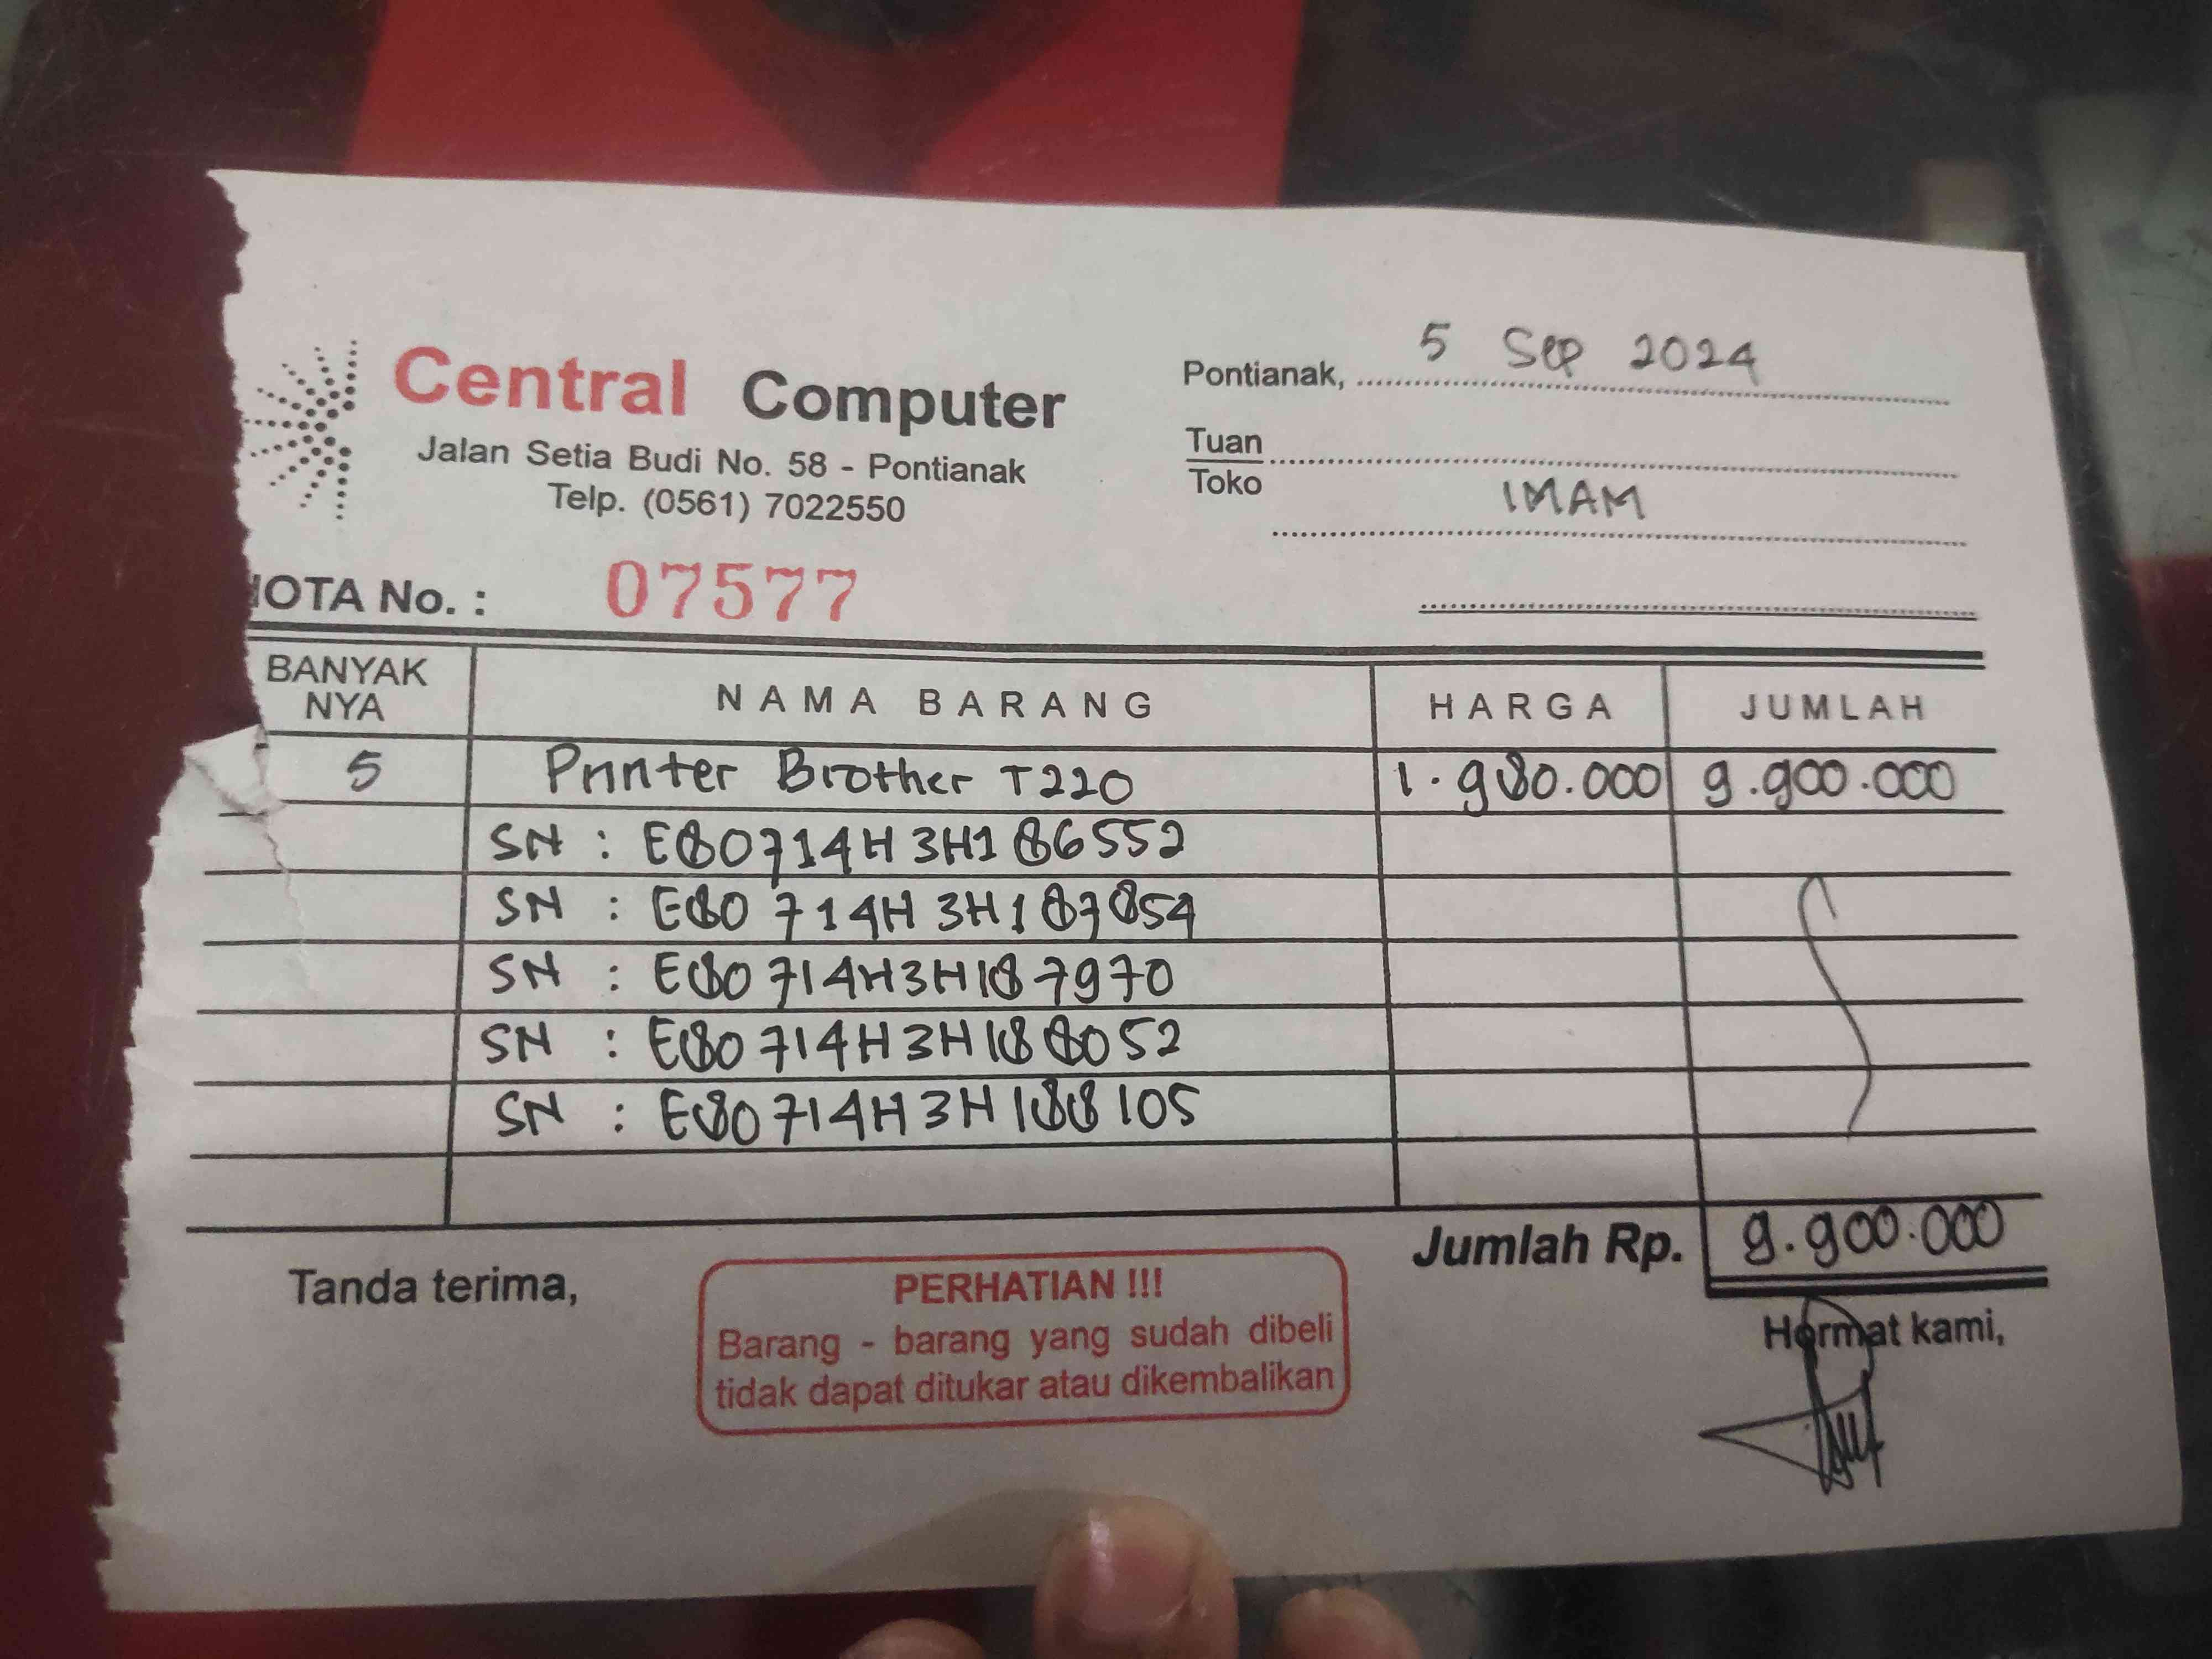 Central Computer
Jalan Setia Budi No. 58 - Pontianak
Telp. (0561) 7022550
Pontianak, 5 Sep 2024
Tuan
Toko
IMAM
NOTA No. : 07577
BANYAK NYA NAMA BARANG HARGA JUMLAH
5 Printer Brother T220 1.980.000 9.900.000
SN : E80714H3H186552
SN : E80714H3H187854
SN : E80714H3H187970
SN : E80714H3H188052
SN : E80714H3H188105
Jumlah Rp. 9.900.000
Tanda terima,
PERHATIAN !!!
Barang - barang yang sudah dibeli
tidak dapat ditukar atau dikembalikan
Hormat kami,